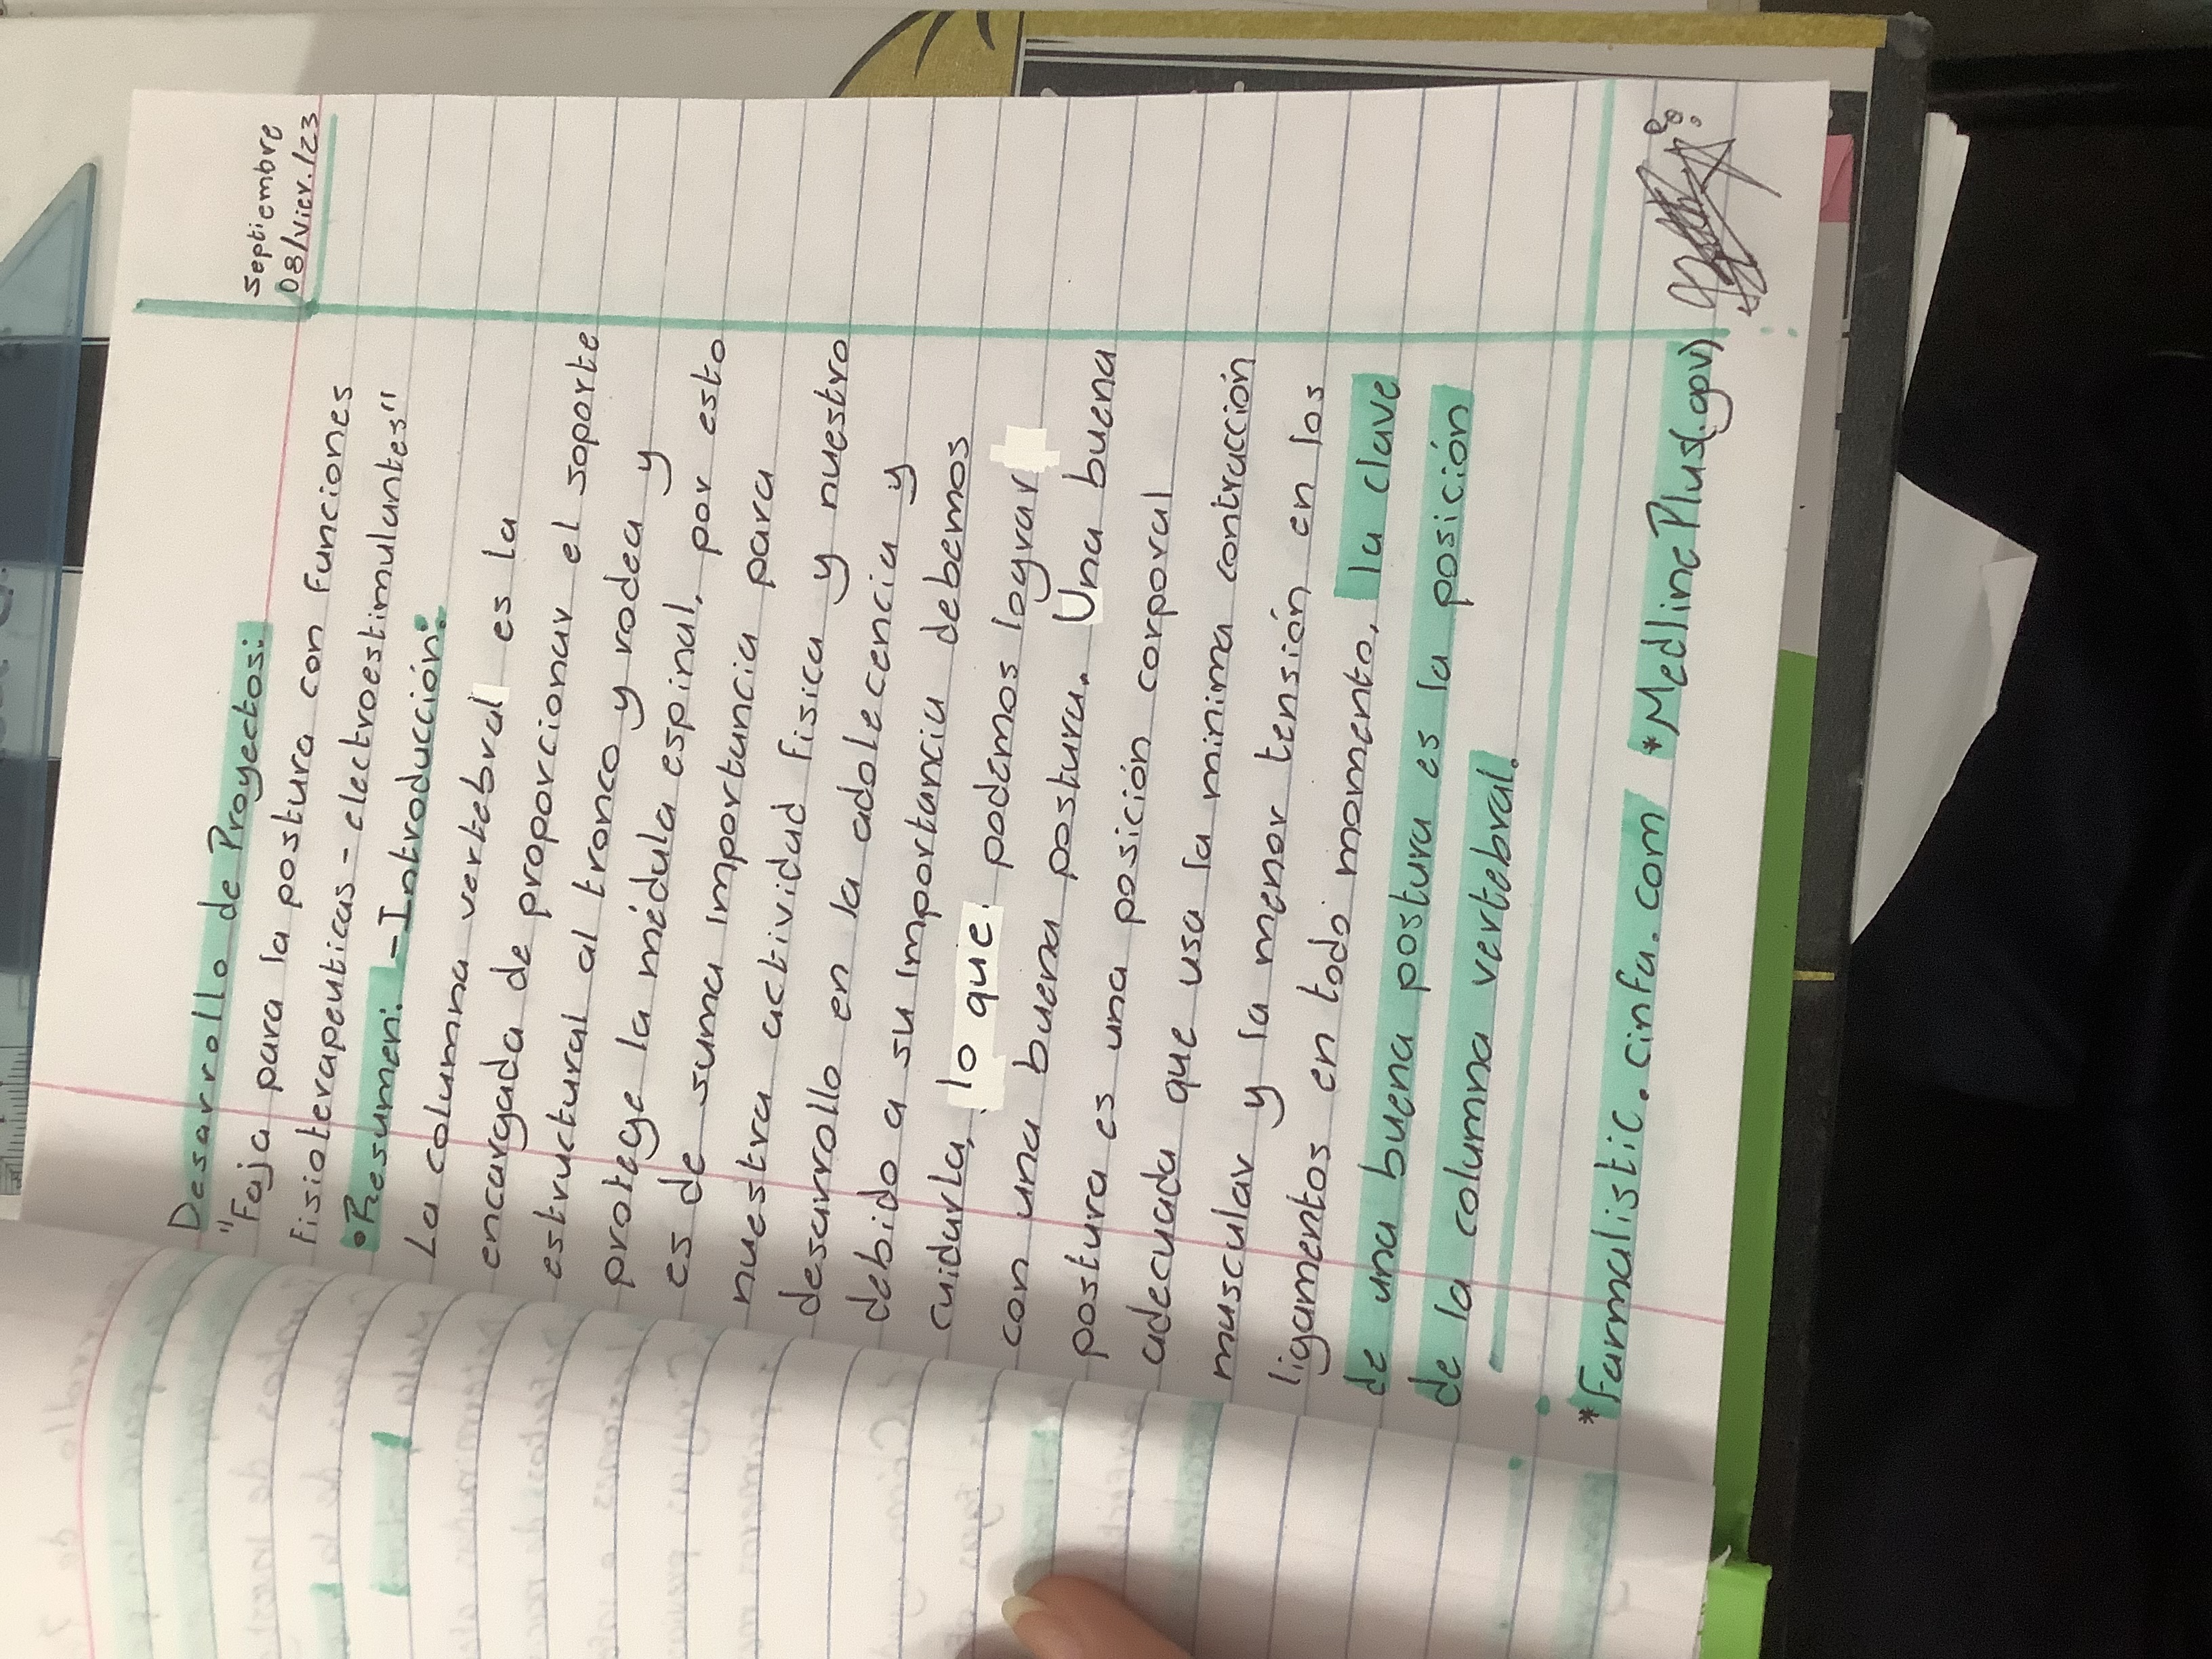 Septiembre
08/Vier./23
Desarrollo de Proyectos:
"Faja para la postura con funciones
fisioterapeuticas - electroestimulantes"
•Resumen: -Introducción:
La columna vertebral es la
encargada de proporcionar el soporte
estructural al tronco y rodea y
protege la médula espinal, por esto
es de suma importancia para
nuestra actividad fisica y nuestro
desarrollo en la adolecencia y
debido a su importancia debemos
cuidarla, lo que podemos lograr
con una buena postura. Una buena
postura es una posición corporal
adecuada que usa la minima contracción
muscular y la menor tensión en los
ligamentos en todo momento, la clave
de una buena postura es la posición
de la columna vertebral.
*Farmalistic.cinfa.com *MedlinePlus(.gov)